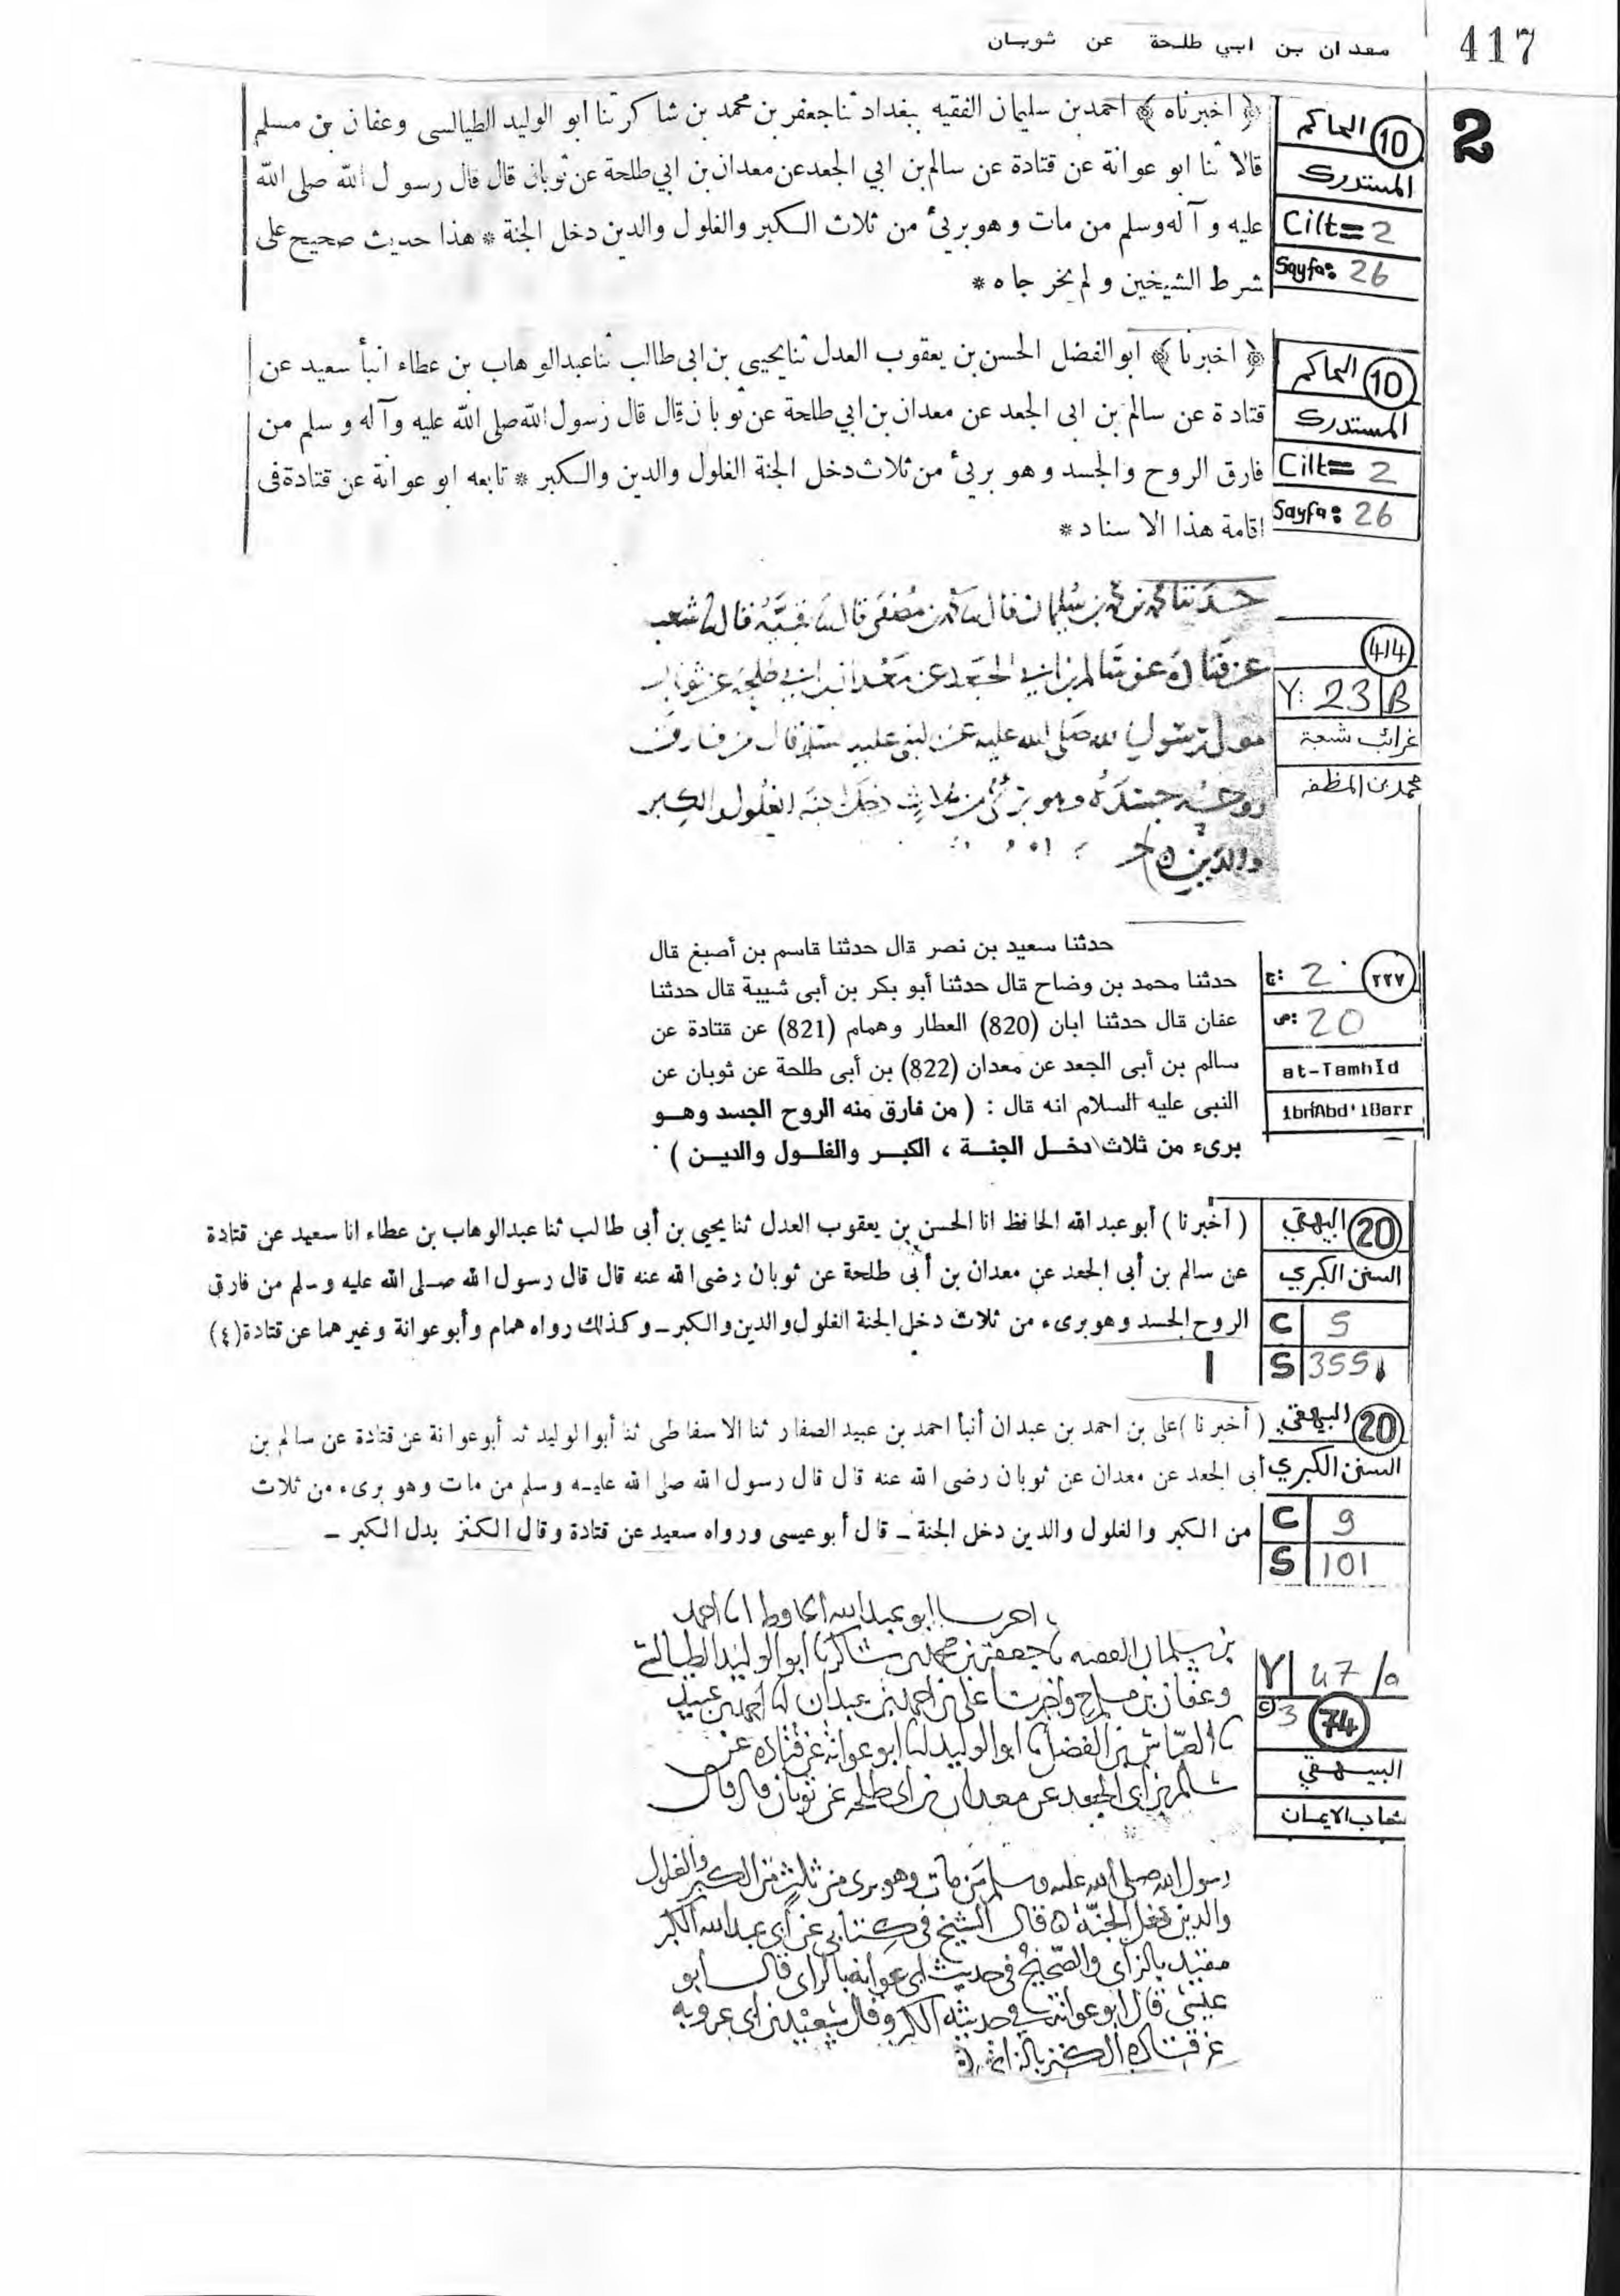 417
معدان بن ابي طلحة عن ثوبان
2
10 الحاكم
المستدرك
Cilt= 2
Sayfa: 26
﴿ اخبرناه ﴾ احمد بن سليمان الفقيه ببغداد ثنا جعفر بن محمد بن شاكر ثنا ابو الوليد الطيالسى وعفان بن مسلم
قالا ثنا ابو عوانة عن قتادة عن سالم بن ابي الجعد عن معدان بن ابي طلحة عن ثوبان قال قال رسول الله صلى الله
عليه وآله وسلم من مات وهو برئ من ثلاث الكبر والغلول والدين دخل الجنة * هذا حديث صحيح على
شرط الشيخين ولم يخرجاه *
10 الحاكم
المستدرك
Cilt= 2
Sayfa: 26
﴿ اخبرنا ﴾ ابو الفضل الحسن بن يعقوب العدل ثنا يحيى بن ابى طالب ثنا عبد الوهاب بن عطاء انبأ سعيد عن
قتادة عن سالم بن ابى الجعد عن معدان بن ابي طلحة عن ثوبان قال قال رسول الله صلى الله عليه وآله وسلم من
فارق الروح والجسد وهو برئ من ثلاث دخل الجنة الغلول والدين والكبر * تابعه ابو عوانة عن قتادة فى
اقامة هذا الاسناد *
414
Y: 23 B
غرائب شعبة
محمد بن المظفر
حدثنا محمد بن محمد بن سليمان قال محمد بن مصفى قال بقية قال شعبة
عن قتادة عن سالم بن ابي الجعد عن معدان بن ابي طلحة عن ثوبان
مولى رسول الله صلى الله عليه عن النبي عليه السلام قال من فارق
روحه جسده وهو برئ من ثلاث دخل الجنة الغلول والكبر
والدين
٢٢٧
ج: 2
ص: 20
at-Tamhîd
ibn Abd'ilBarr
حدثنا سعيد بن نصر قال حدثنا قاسم بن أصبغ قال
حدثنا محمد بن وضاح قال حدثنا أبو بكر بن أبى شيبة قال حدثنا
عفان قال حدثنا ابان (820) العطار وهمام (821) عن قتادة عن
سالم بن أبى الجعد عن معدان (822) بن أبى طلحة عن ثوبان عن
النبى عليه السلام انه قال : ( من فارق منه الروح الجسد وهو
برىء من ثلاث دخل الجنة ، الكبر والغلول والدين ) .
20 البيهقي
السنن الكبري
C 5
S 355
( أخبرنا ) أبو عبد الله الحافظ انا الحسن بن يعقوب العدل ثنا يحيى بن أبى طالب ثنا عبدالوهاب بن عطاء انا سعيد عن قتادة
عن سالم بن أبى الجعد عن معدان بن أبى طلحة عن ثوبان رضى الله عنه قال قال رسول الله صلى الله عليه وسلم من فارق
الروح الجسد وهو برىء من ثلاث دخل الجنة الغلول والدين والكبر – وكذلك رواه همام وأبو عوانة وغيرهما عن قتادة (٤)
1
20 البيهقي
السنن الكبري
C 9
S 101
( أخبرنا ) على بن احمد بن عبدان أنبأ احمد بن عبيد الصفار ثنا الاسفاطى ثنا أبو الوليد ثنا أبو عوانة عن قتادة عن سالم بن
أبى الجعد عن معدان عن ثوبان رضى الله عنه قال قال رسول الله صلى الله عليه وسلم من مات وهو برىء من ثلاث
من الكبر والغلول والدين دخل الجنة – قال أبو عيسى ورواه سعيد عن قتادة وقال الكنز بدل الكبر –
Y 47/a
C 3 74
البيهقي
شعاب الايمان
اخبرنا ابو عبد الله الحافظ انا احمد
بن سلمان الفقيه جعفر بن محمد بن شاكر ابو الوليد الطيالسي
وعفان بن مسلم ح واخبرنا علي بن احمد بن عبدان انا احمد بن عبيد
العباس بن الفضل ابو الوليد ابو عوانة عن قتادة عن
سالم بن ابي الجعد عن معدان بن ابي طلحة عن ثوبان قال قال
رسول الله صلى الله عليه وسلم من مات وهو برى من ثلث من الكبر والغلول
والدين دخل الجنة قال الشيخ في كتابي عن ابي عبد الله الكنز
مقيد بالزاى والصحيح في حديث ابي عوانة بالراى قال ابو
عيسى قال ابو عوانة في حديثه الكبر وقال سعيد بن ابي عروبة
عن قتادة الكنز بالزاي